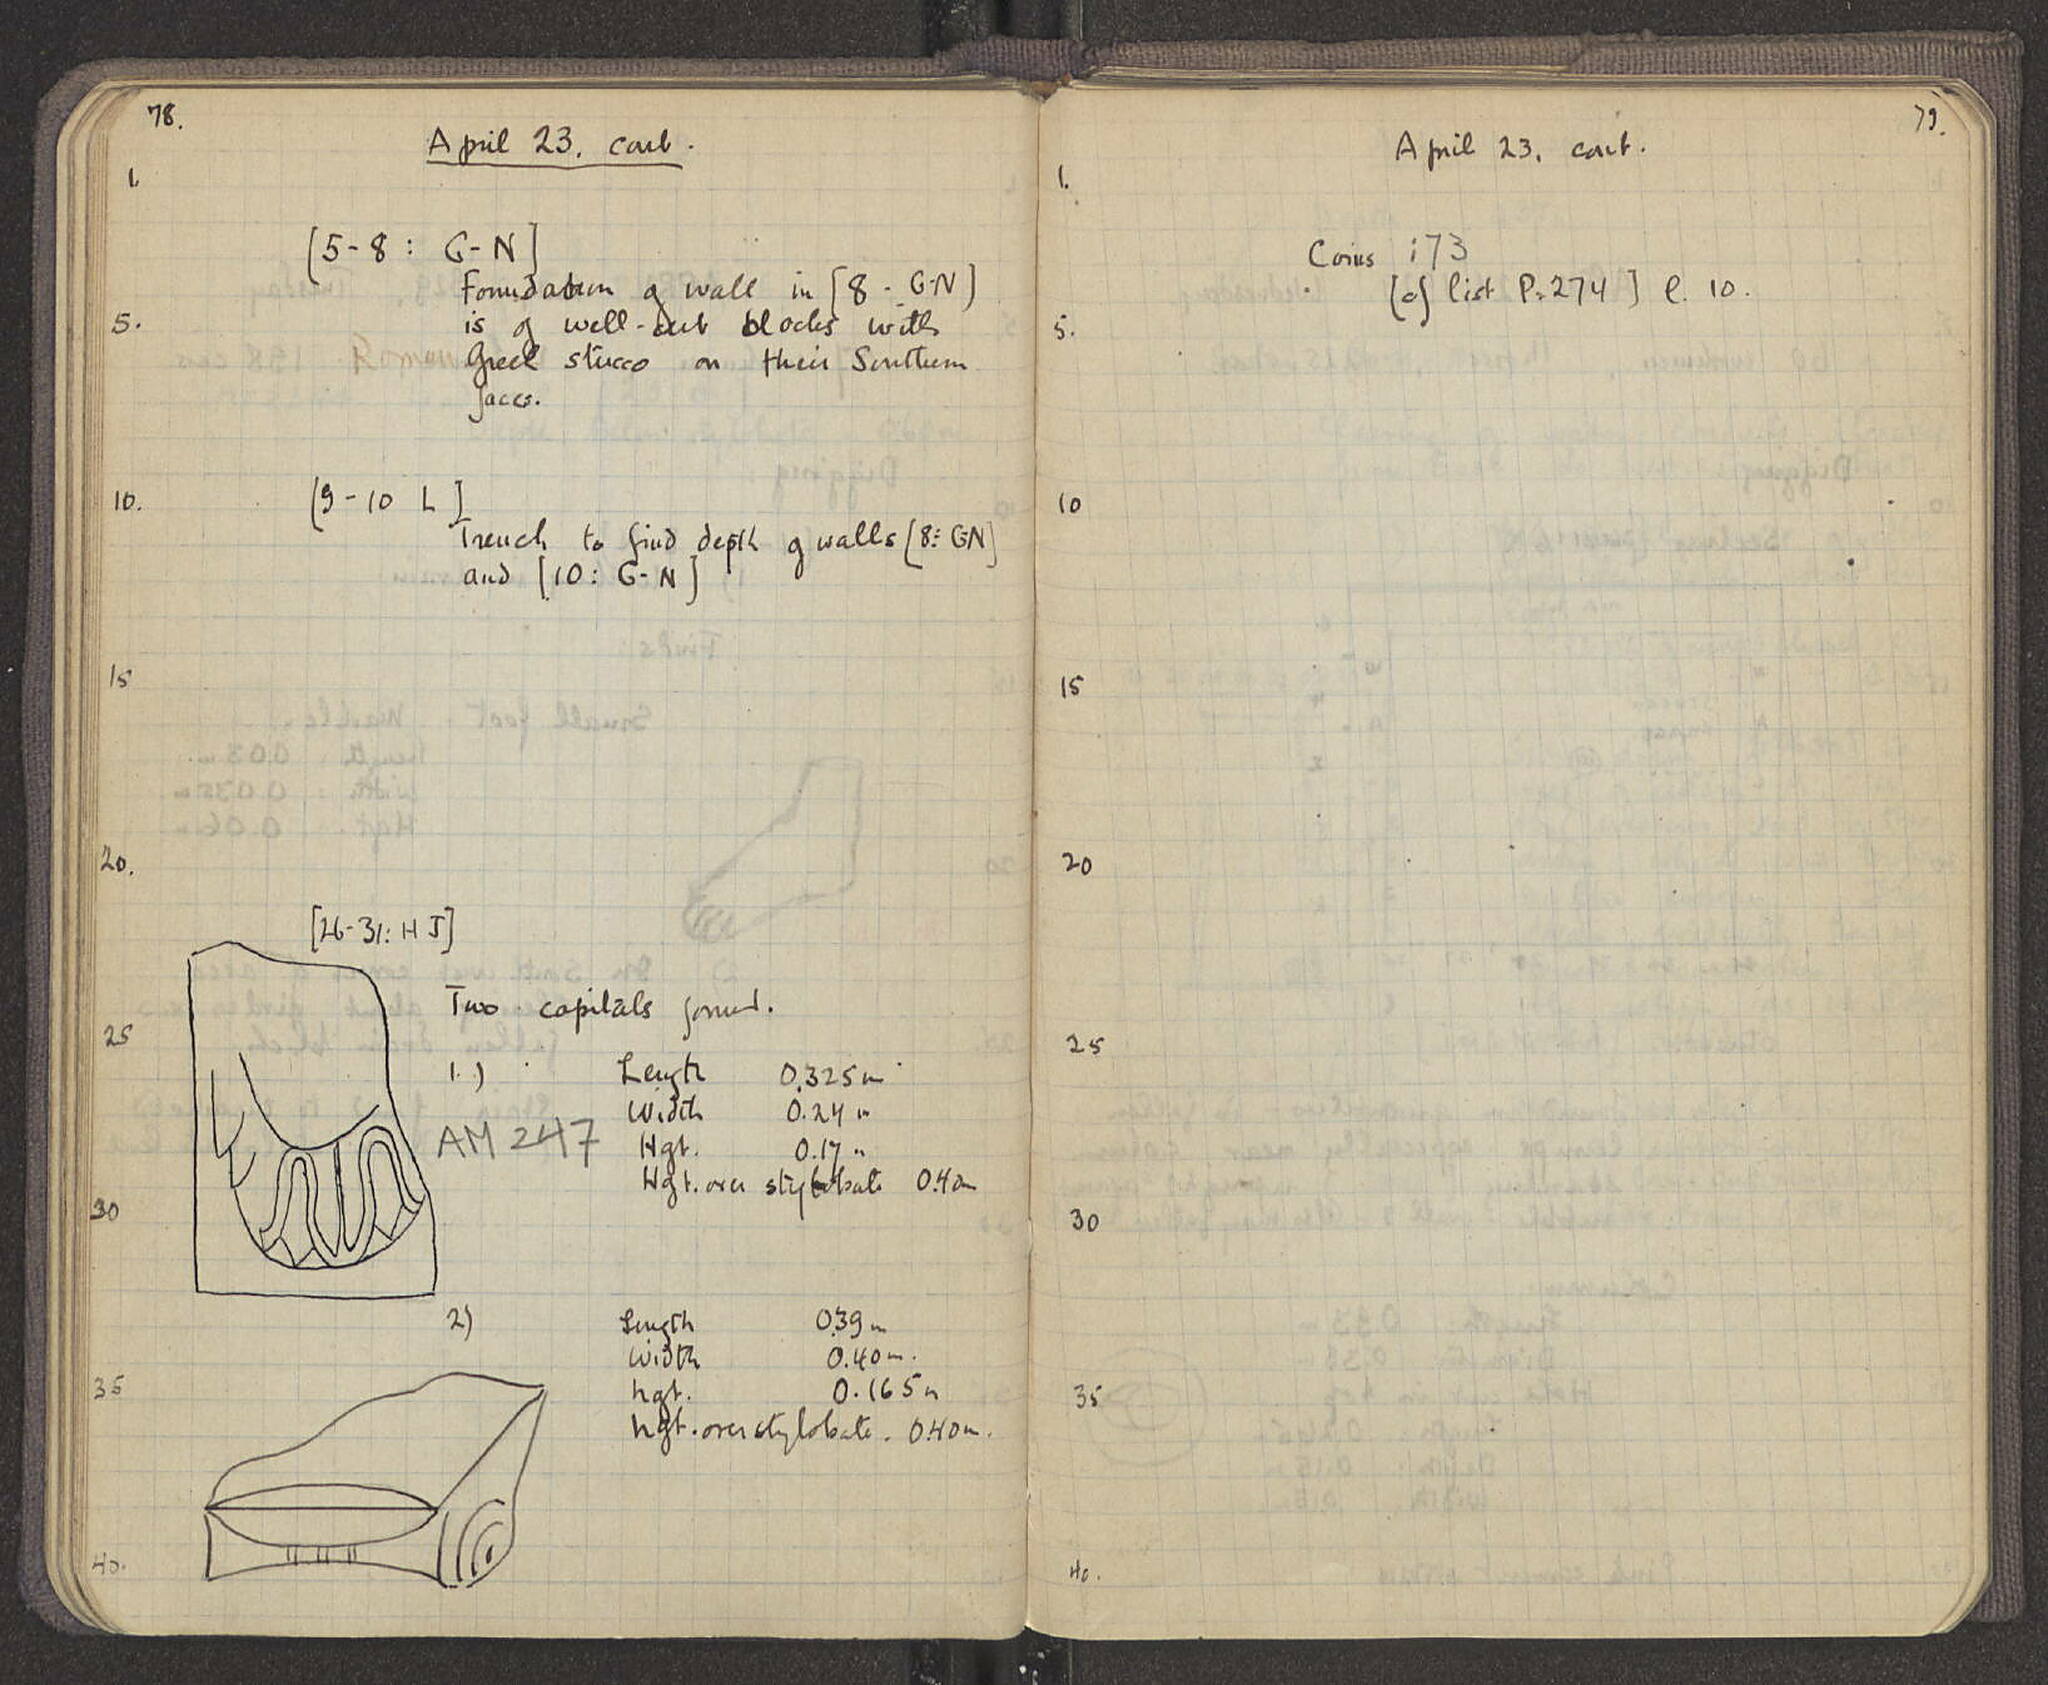 78.
April 23. cont.
1.
[5-8: G-N]
Foundation of wall in [8 - G-N]
5. is of well-cut blocks with
Greek stucco on their Southern
faces.
10. [9-10 L]
Trench to find depth of walls [8: GN]
and [10: G-N]
15
20.
[26-31: H J]
Two capitals found.
25
1.) Length 0.325m
Width 0.24 "
AM 247 Hgt. 0.17 "
Hgt. over stylobate 0.40m
30
2) Length 0.39m
Width 0.40m.
35 hgt. 0.165m
hgt. over stylobate. 0.40m.
40.
79.
April 23. cont.
1.
Coins : 73
[cf list P. 274] l. 10.
5.
10
15
20
25
30
35
40.